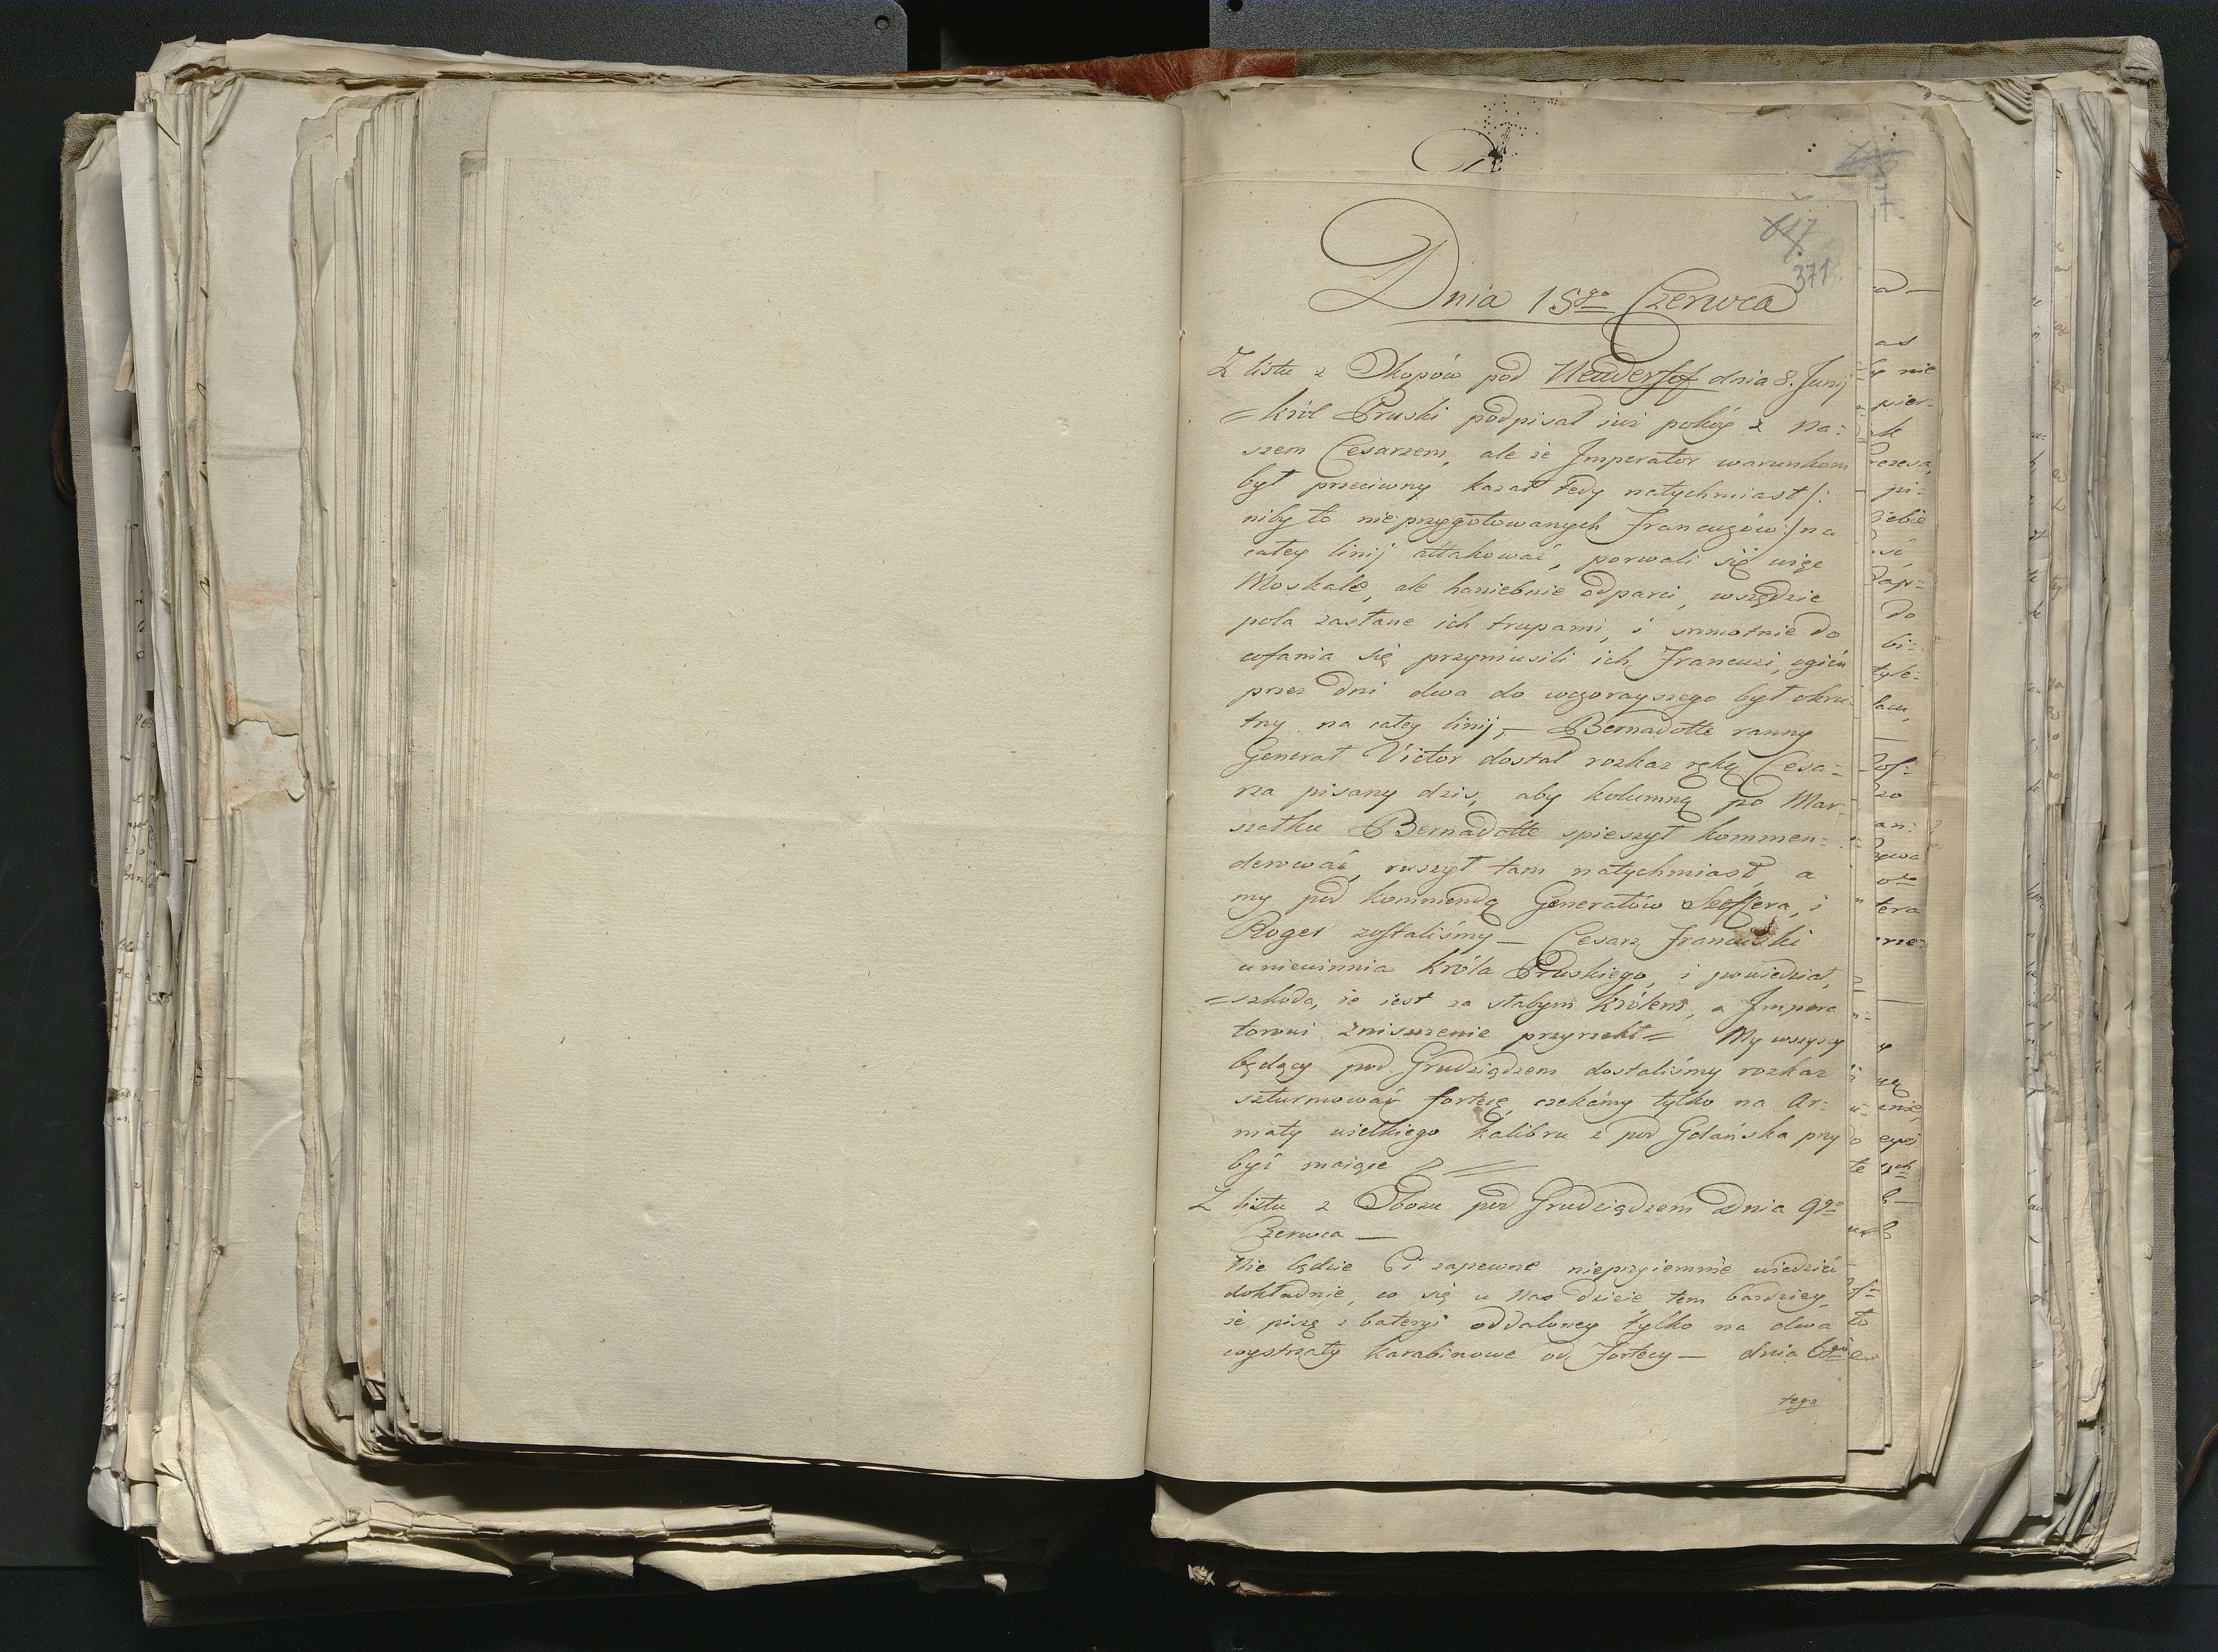 371
Dnia 15go Czerwca
Z listu z Okopów pod Neudorf dnia 8. Junij
= król Pruski podpisał iuż pokóy z Na:
szem Cesarzem, ale że Imperator warunkom
był przeciwny kazał tedy natychmiast /:
niby to nieprzygotowanych Francuzów :/ na
całey linij attakować, porwali się więc
Moskale, ale haniebnie odparci, wszędzie
pola zasłane ich trupami, i sromotnie do
cofania się przymusili ich Francuzi, ogień
przez dni dwa do wczorayszego był okru:
tny na całey linij, — Bernadotte ranny
Generał Victor dostał rozkaz ręką Cesa:
rza pisany dziś, aby kolumną po Mar
szałku Bernadotte spieszył kommen:
derować, ruszył tam natychmiast, a
my pod kommendą Generałów i
Roger zostaliśmy — Cesarz Francuski
uniewinnia Króla Pruskiego, i powiedział,
= szkoda, że iest za słabym Królem, a Impera
torowi zniszczenie przyrzekł = My wszyscy
będący pod Grudziądzem dostaliśmy rozkaz
szturmować fortecę, czekamy tylko na Ar:
maty wielkiego kalibru z pod Gdańska przy
być maiące
Z listu z Obozu pod Grudziądzem Dnia 9go
Czerwca —
Nie będzie Ci zapewne nieprzyiemnie wiedzieć
dokładnie, co się u Nas dzieie tem bardziey,
że piszę z bateryi oddaloney tylko na dwa
wystrzały karabinowe od fortecy — dnia 6go
tego